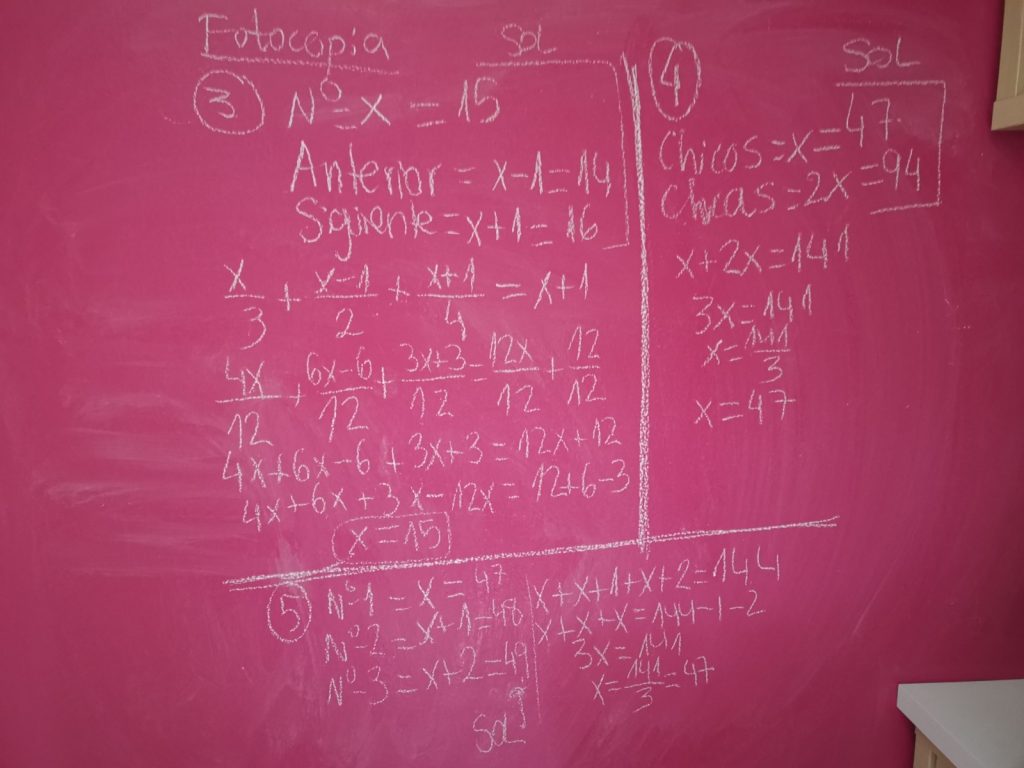 Fotocopia
SOL
③ Nº = x = 15
Anterior = x-1 = 14
Siguiente = x+1 = 16
x/3 + x-1/2 + x+1/4 = x+1
4x/12 + 6x-6/12 + 3x+3/12 = 12x/12 + 12/12
4x+6x-6+3x+3=12x+12
4x+6x+3x-12x=12+6-3
x=15
④
SOL
Chicos=x=47
Chicas=2x=94
x+2x=141
3x=141
x=141/3
x=47
⑤ Nº1 = x = 47
Nº2 = x+1 = 48
Nº3 = x+2 = 49
SOL
x+x+1+x+2=144
x+x+x=144-1-2
3x=141
x=141/3=47